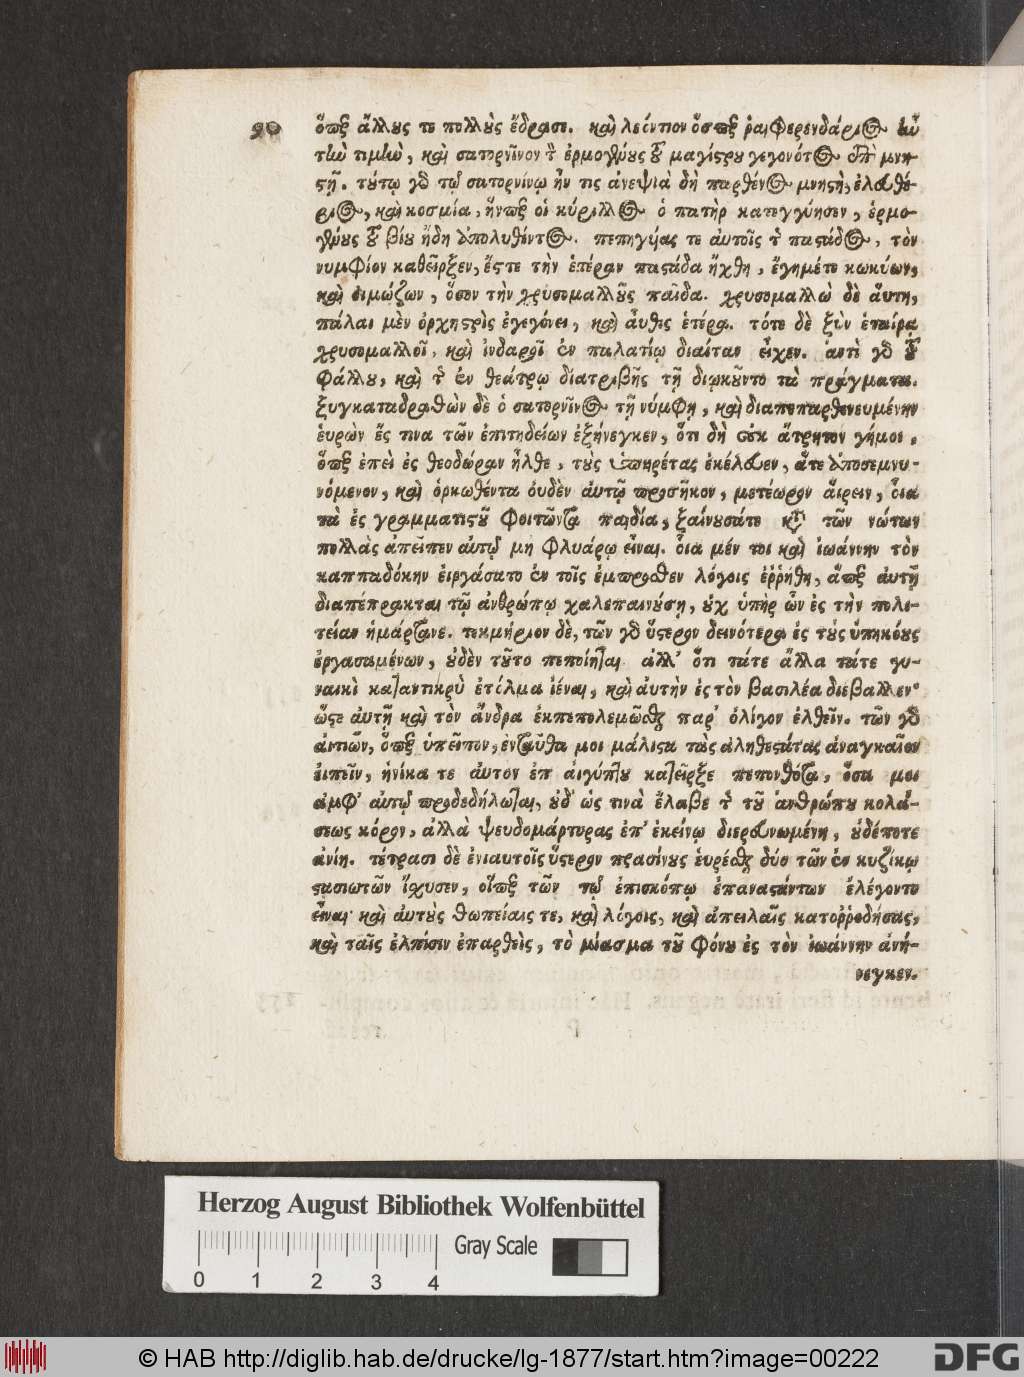 90 ὅπερ ἄλλους τε πολλοὺς ἔδρασε. καὶ λεόντιον ὅσπερ ῥαιφερενδάριος ἦν
τὴν τιμὴν, καὶ σατορνῖνον τὸν ἑρμογένους τοῦ μαγίστρου γεγονότος ἐπὶ μνη-
στῇ. τούτῳ γὰρ τῷ σατορνίνῳ ἦν τις ἀνεψιὰ δὴ παρθένος μνηστὴ, ἐλευθέ-
ριος, καὶ κοσμία, ἥνπερ οἱ κύριλλος ὁ πατὴρ κατεγγύησεν, ἑρμο-
γένους τοῦ βίου ἤδη ἀπολυθέντος. πεπηγυίας τε αὐτοῖς τῆς παστάδος, τὸν
νυμφίον καθεῖρξεν, ἔς τε τὴν ἑτέραν παστάδα ἤχθη, ἔγημέ τε κωκύων,
καὶ οἰμώζων, ὅσον τὴν χρυσομαλλοῦς παῖδα. χρυσομαλλὼ δὲ αὕτη,
πάλαι μὲν ὀρχηστρὶς ἐγεγόνει, καὶ αὖθις ἑταίρα. τότε δὲ ξὺν ἑταίρᾳ
χρυσομαλλοῖ, καὶ ἰνδαροῖ ἐν παλατίῳ δίαιταν εἶχεν. ἀντὶ γὰρ τοῦ
φάλλου, καὶ τῆς ἐν θεάτρῳ διατριβῆς τῇ διῳκοῦντο τὰ πράγματα.
ξυγκαταδραθὼν δὲ ὁ σατορνῖνος τῇ νύμφῃ, καὶ διαπεπαρθενευμένην
εὑρὼν ἔς τινα τῶν ἐπιτηδείων ἐξήνεγκεν, ὅτι δὴ οὐκ ἄτρητον γήμοι.
ὅπερ ἐπεὶ ἐς θεοδώραν ἦλθε, τοὺς ὑπηρέτας ἐκέλευεν, ἅτε ἀποσεμνυ-
νόμενον, καὶ ὁρκωθέντα οὐδὲν αὐτῷ προσῆκον, μετέωρον αἴρειν, οἷα
τὰ ἐς γραμματιστοῦ φοιτῶντα παιδία, ξαίνουσά τε κατὰ τῶν νώτων
πολλὰς ἀπεῖπεν αὐτῷ μὴ φλυάρῳ εἶναι. οἷα μέν τοι καὶ ἰωάννην τὸν
καππαδόκην εἰργάσατο ἐν τοῖς ἔμπροσθεν λόγοις ἐῤῥήθη, ἅπερ αὐτῇ
διαπέπρακται τῷ ἀνθρώπῳ χαλεπαινούσῃ, οὐχ ὑπὴρ ὧν ἐς τὴν πολι-
τείαν ἡμάρτανε. τεκμήριον δὲ, τῶν γὰρ ὕστερον δεινότερα ἐς τοὺς ὑπηκόους
ἐργασαμένων, οὐδὲν τοῦτο πεποίηται ἀλλ' ὅτι τάτε ἄλλα τάτε γυ-
ναικὶ καταντικρὺ ἐτόλμα ἰέναι, καὶ αὐτὴν ἐς τὸν βασιλέα διέβαλλεν·
ὥστε αὐτῇ καὶ τὸν ἄνδρα ἐκπεπολεμῶσθαι παρ' ὀλίγον ἐλθεῖν. τῶν γὰρ
αἰτιῶν, ὅπερ ὑπεῖπον, ἐνταῦθα μοι μάλιστα τὰς ἀληθεστάτας ἀναγκαῖον
εἰπεῖν, ἡνίκα τε αὐτὸν ἐπ αἰγύπτου κατεῖρξε πεπονθότα, ὅσα μοι
ἀμφ' αὐτῷ προδεδήλωται, οὐδ' ὡς τινὰ ἔλαβε τῆς τοῦ ἀνθρώπου κολά-
σεως κόρον, ἀλλὰ ψευδομάρτυρας ἐπ' ἐκείνῳ διερευνωμένη, οὐδέποτε
ἀνίη. τέτρασι δὲ ἐνιαυτοῖς ὕστερον πρασίνους εὑρέσθαι δύο τῶν ἐν κυζίκῳ
στασιωτῶν ἴσχυσεν, οἵπερ τῶν τῷ ἐπισκόπῳ ἐπαναστάντων ἐλέγοντο
εἶναι· καὶ αὐτοὺς θωπείαις τε, καὶ λόγοις, καὶ ἀπειλαῖς κατοῤῥωδήσας,
καὶ ταῖς ἐλπίσιν ἐπαρθεὶς, τὸ μίασμα τοῦ φόνου ἐς τὸν ἰωάννην ἀνή-
νεγκεν.
Herzog August Bibliothek Wolfenbüttel
Gray Scale
0 1 2 3 4
© HAB http://diglib.hab.de/drucke/lg-1877/start.htm?image=00222
DFG